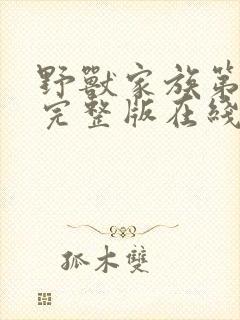 野獸家族第
完整版在綫
孤木雙